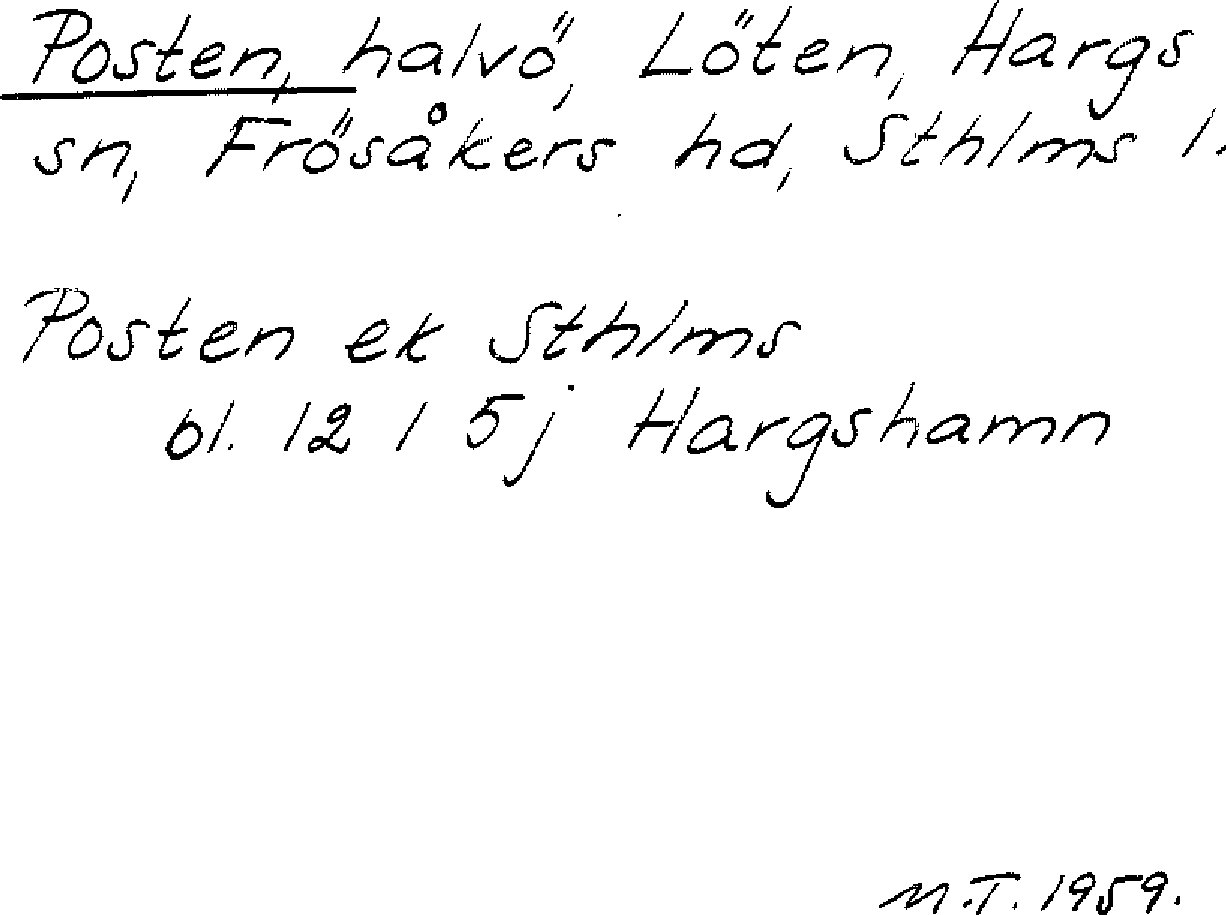 Posten, halvö, Löten, Hargs
sn, Frösåkers hd, Sthlms l.
Posten ek Sthlms
bl. 12 I 5j Hargshamn
M.T. 1959.